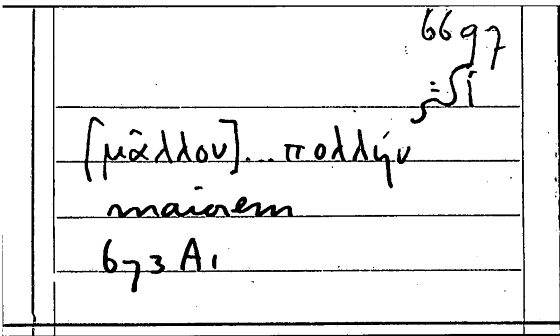 6697
[μᾶλλον]... πολλήν
maiorem
673 A1